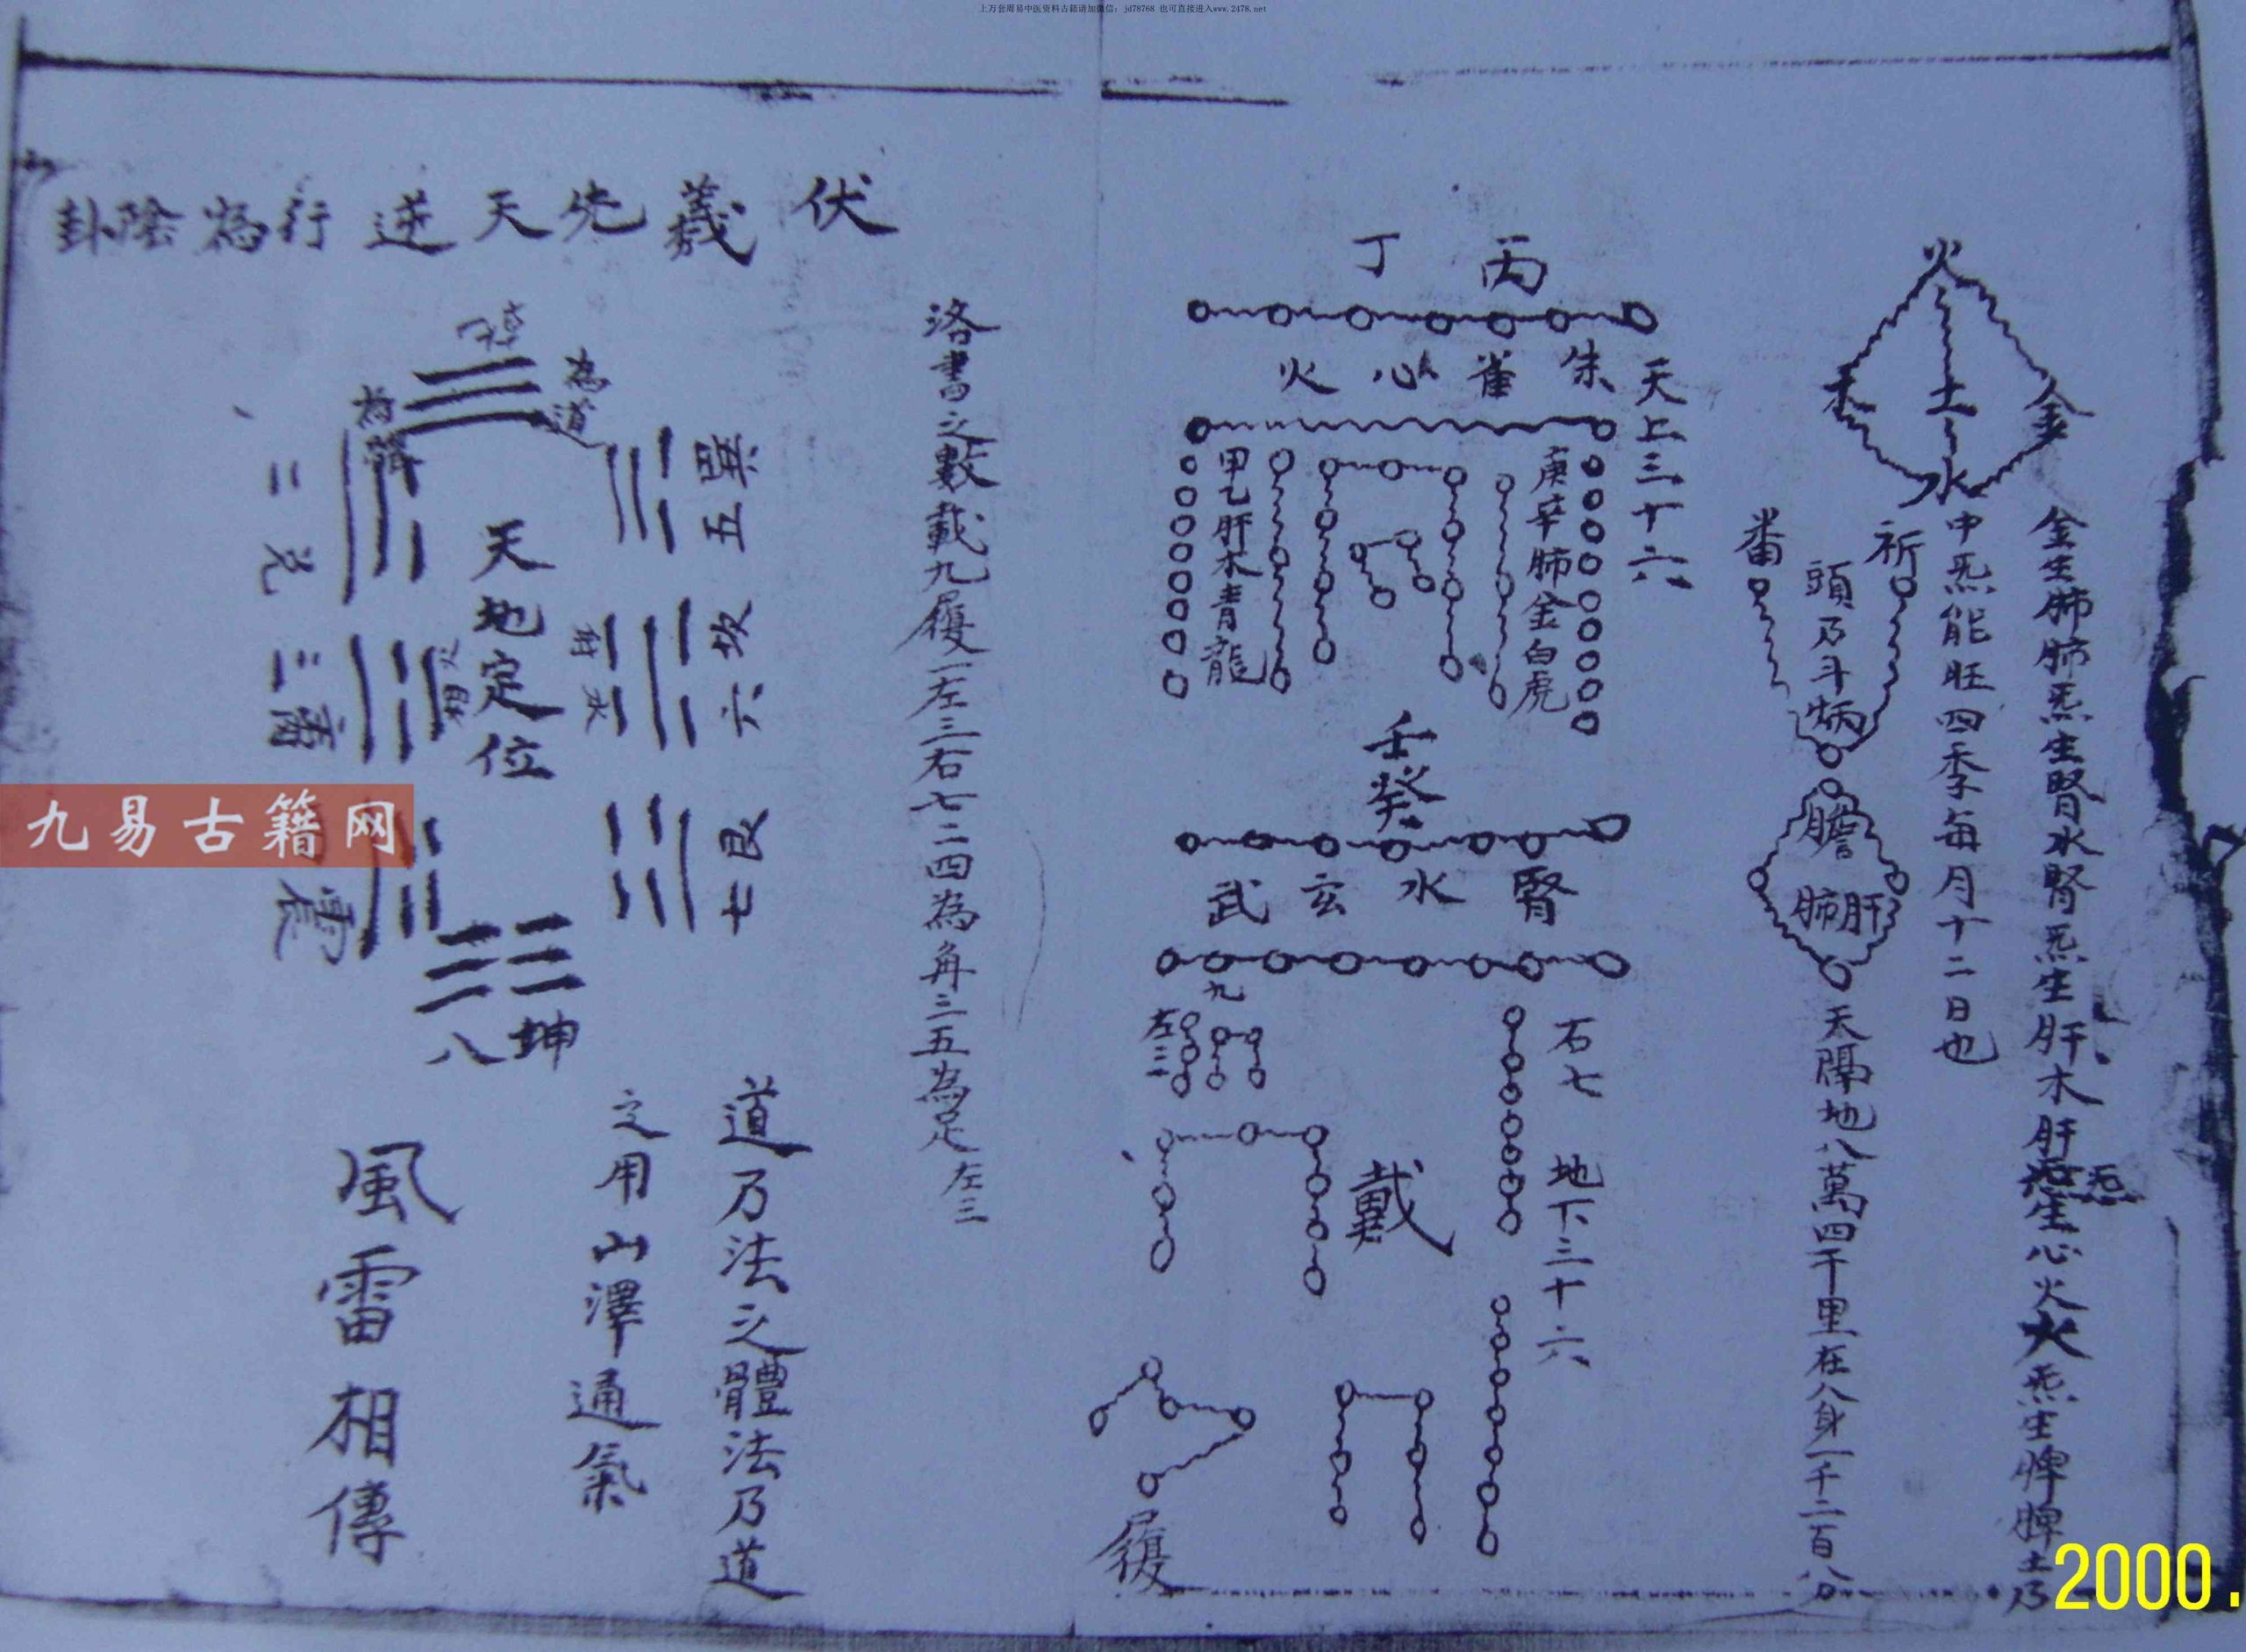 上万套周易中医资料古籍请加微信：jd78768 也可直接进入www.2478.net
火
木
土
金
水
金生肺肺炁生腎水腎炁生肝木肝炁生心火火炁生脾脾土乃
炁
中炁能旺四季每月十二日也
祈
番
頭乃斗炳
膽
肺肝
天隔地八萬四千里在人身一千二百八分
丙
丁
朱雀心火
天上三十六
庚辛肺金白虎
甲乙肝木青龍
壬癸
腎水玄武
石七
地下三十六
九
左三
戴
履
洛書之數戴九履一左三右七二四為角三五為足
左三
伏羲先天逆行為陰卦
為道
巽五
坎六
艮七
坤八
二兑
三離
震
天地定位
道乃法之體法乃道
之用山澤通氣
風雷相傳
九易古籍网
2000.